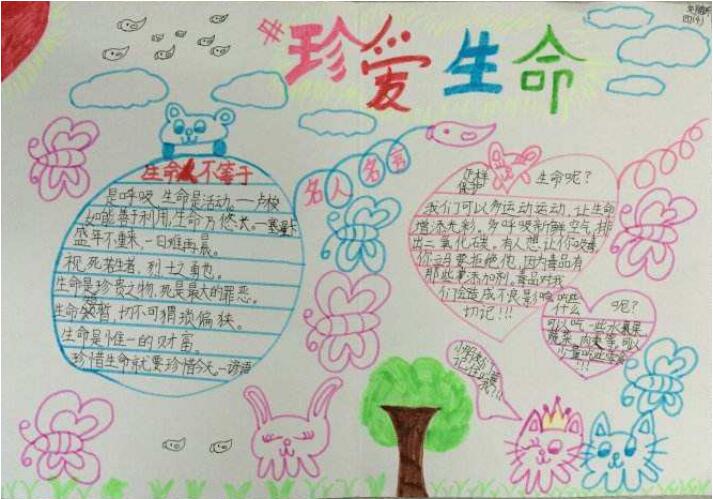 珍爱生命
四(4)
名人名言
生命不等于
是呼吸,生命是活动。一卢梭
如能善于利用,生命乃悠长。一塞涅卡
盛年不重来,一日难再晨。
视死若生者,烈士之勇也。
生命是珍贵之物,死是最大的罪恶。
生命短暂,切不可猥琐偏狭。
生命是惟一的财富。
珍惜生命就要珍惜今天。一谚语
怎样
保护
生命呢?
我们可以多运动运动,让生命
增添光彩。多呼吸新鲜空气,排
出二氧化碳。有人想让你吸毒
你立马要拒绝他,因为毒品有
那些
毒品对我
们会造成不良影响
切记!!!
吃些
什么
呢?
可以吃一些水果
蔬菜、肉类等,可以
少量吃些零食